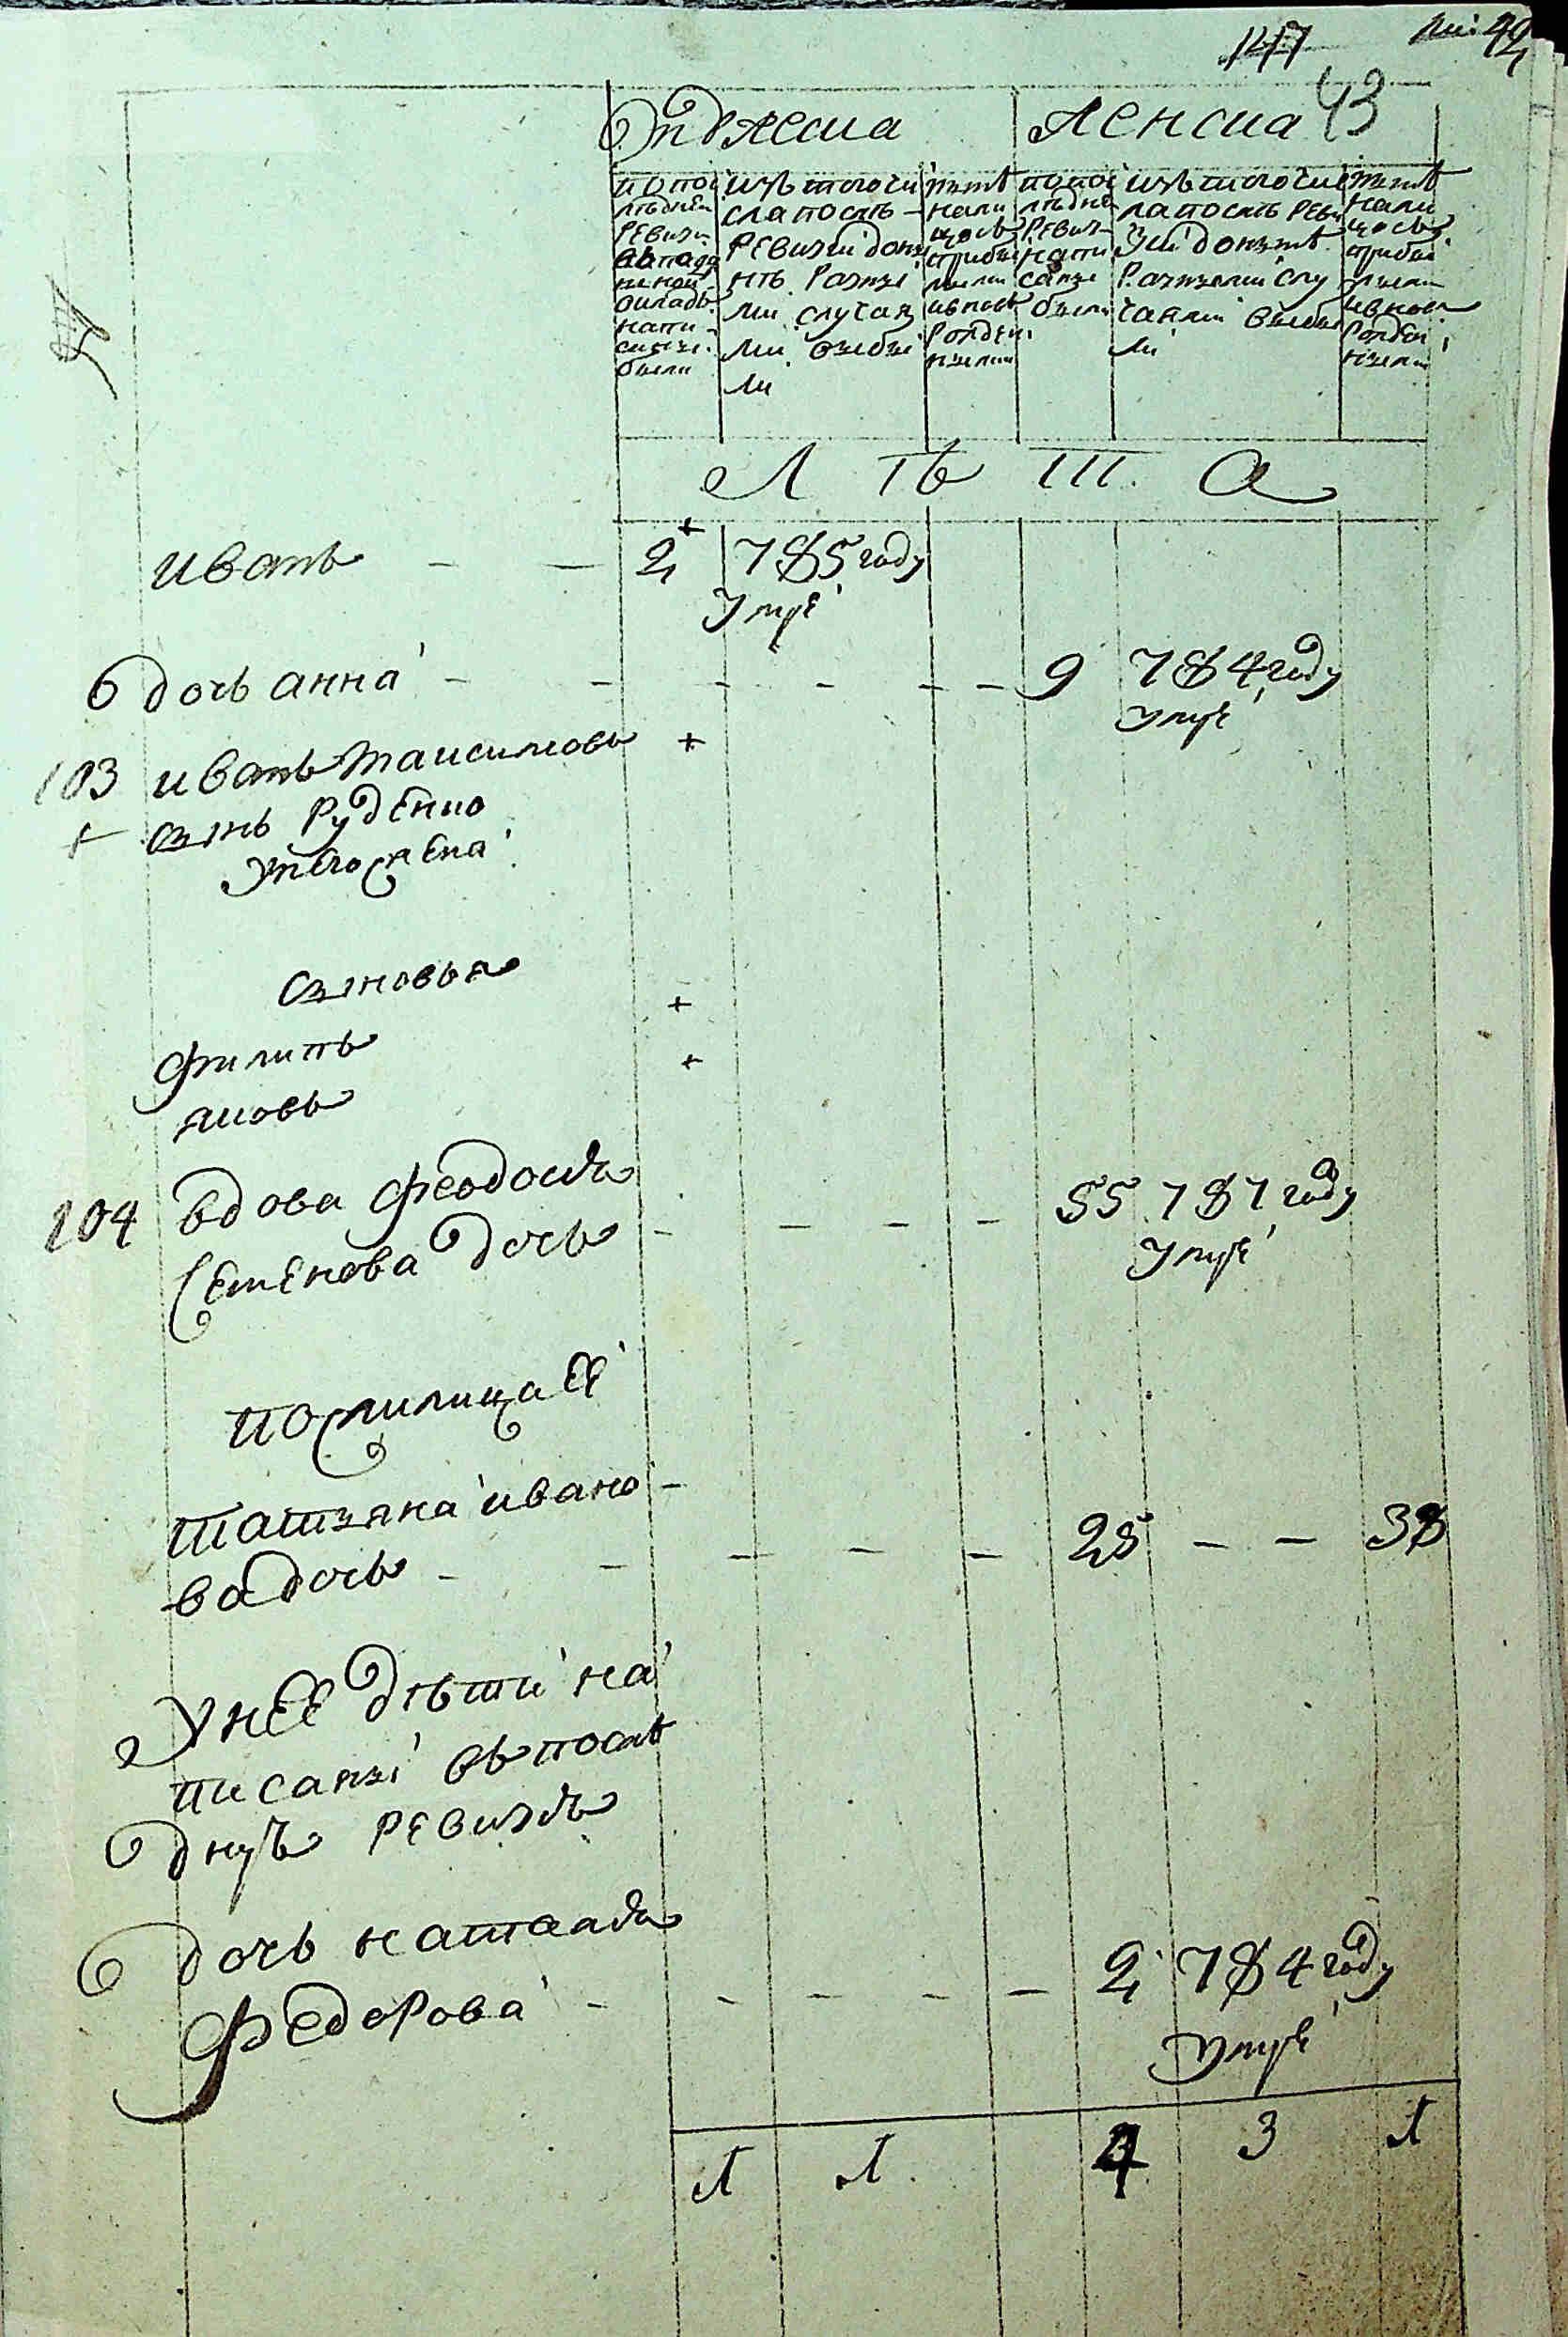 147
42
43
Мужеска
Женска
по пос
лѣдней
ревизи
въ подо
шной
окладъ
напи
саны
были
изъ того чи
сла послѣ
ревизіи до ны
нѣ разны
ми случая
ми выбы
ли
нынѣ
на ли
цо съ
прибы
лыми
и вновь
рожден
ными
по пос
лѣдней
ревиз
напи
саны
были
изъ того чис
ла послѣ реви
зіи до нынѣ
разными слу
чаями выбы
ли
нынѣ
на ли
цо съ
прибы
лыми
и вновь
рожден
ными
Л ѣ т а
Иванъ - - 2 785 году
умре
дочь Анна - - - - - - 9 784 году
умре
103 Иванъ Максимовъ +
+ сынъ Руденко
у него жена
сыновья
Филипъ +
Яковъ +
104 Вдова Феодосія
Семенова дочь - - - - 55 787 году
умре
невѣстка ея
Татьяна Ивано
ва дочь - - - - - 28 - - 38
У нее дѣти на
писаны въ послѣ
дную ревизію
дочь Наталія
Федорова - - - - - 2 784 году
умре
1 1 4 3 1